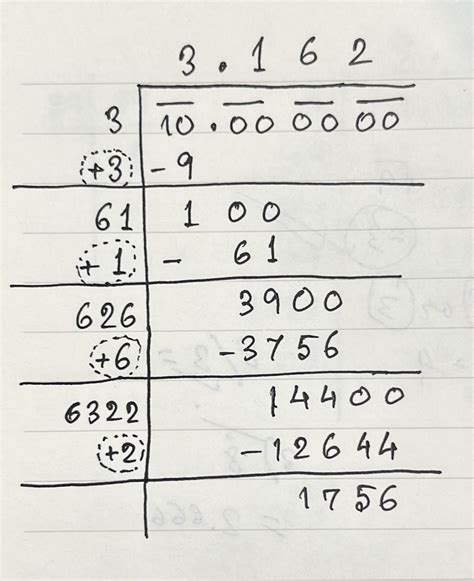 3 . 1 6 2
3 10 . 00 00 00
+3 - 9
61 1 00
+1 - 61
626 3900
+6 - 3756
6322 14400
+2 - 12644
1756